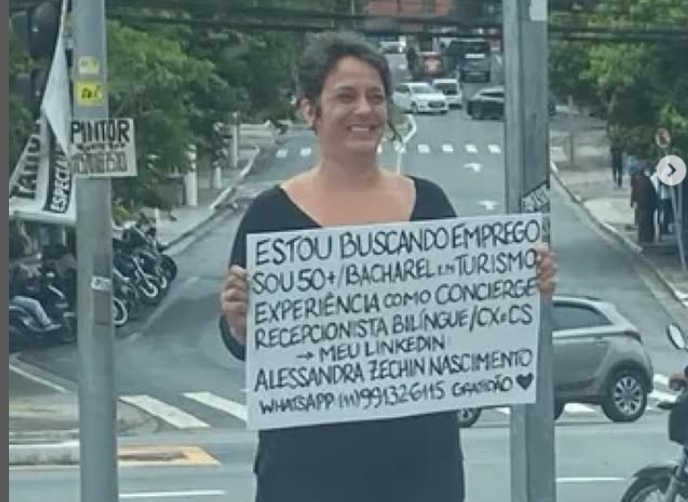 PINTOR
ESPECIAL
ESTOU BUSCANDO EMPREGO
SOU 50+/BACHAREL EM TURISMO
EXPERIÊNCIA COMO CONCIERGE
RECEPCIONISTA BILÍNGUE/CX E CS
→ MEU LINKEDIN:
ALESSANDRA ZECHIN NASCIMENTO
WHATSAPP (11)991326115 GRATIDÃO ♥